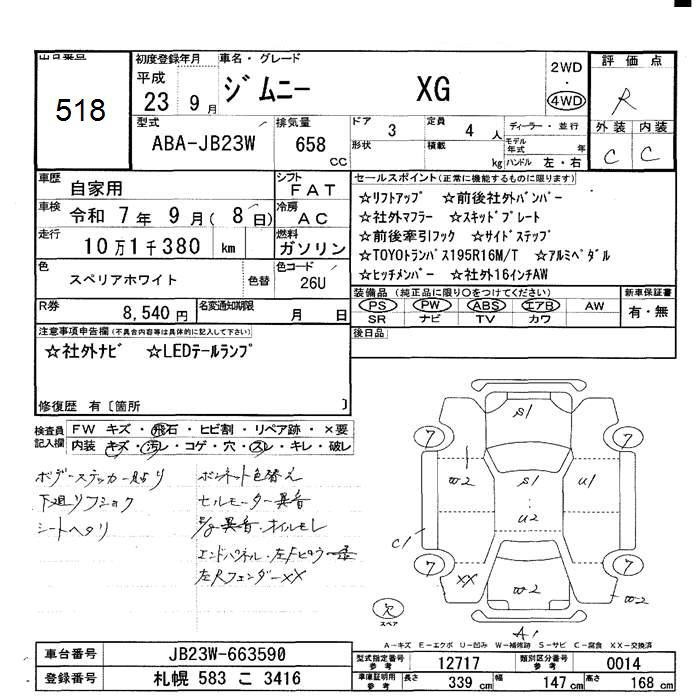 出品番号
518
初度登録年月
平成
23 9月
車名・グレード
ジムニー XG
2WD
・
4WD
評価点
R
外装 内装
C C
型式
ABA-JB23W
排気量
658
CC
ドア
3
定員
4 人
形状
積載
kg
ディーラー・並行
モデル年式 年
ハンドル 左・右
車歴
自家用
シフト
FAT
車検
令和 7年 9月 (8日)
冷房
AC
走行
10万1千380 km
燃料
ガソリン
色
スペリアホワイト
色替
色コード
26U
R券
8,540円
名変通知期限
月 日
セールスポイント(正常に機能するものに限ります)
☆リフトアップ ☆前後社外バンパー
☆社外マフラー ☆スキッドプレート
☆前後牽引フック ☆サイドステップ
☆TOYOトランパス195R16M/T ☆アルミペダル
☆ヒッチメンバー ☆社外16インチAW
装備品 (純正品に限り○をつけてください)
PS PW ABS エアB AW
SR ナビ TV カワ
新車保証書
有・無
後日品
注意事項申告欄(不具合内容等は具体的に記入して下さい)
☆社外ナビ ☆LEDテールランプ
修復歴 有〔箇所 〕
検査員記入欄
FW キズ・飛石・ヒビ割・リペア跡・×要
内装 キズ・汚レ・コゲ・穴・スレ・キレ・破レ
ボデーステッカー貼り
下廻リフショク
シートヘタリ
ボンネット色替え
セルモーター異音
異音・オイルモレ
エンドパネル・左F
左RフェンダーXX
S1
7
7
W2
S1
U1
U2
C1
7
7
XX
W2
W2
A1
欠
スペア
A-キズ E-エクボ U-凹み W-補修跡 S-サビ C-腐食 XX-交換済
車台番号
JB23W-663590
登録番号
札幌 583 こ 3416
型式指定番号 参考
12717
類別区分番号 参考
0014
車庫証明用 参考
長さ 339cm 幅 147cm 高さ 168cm